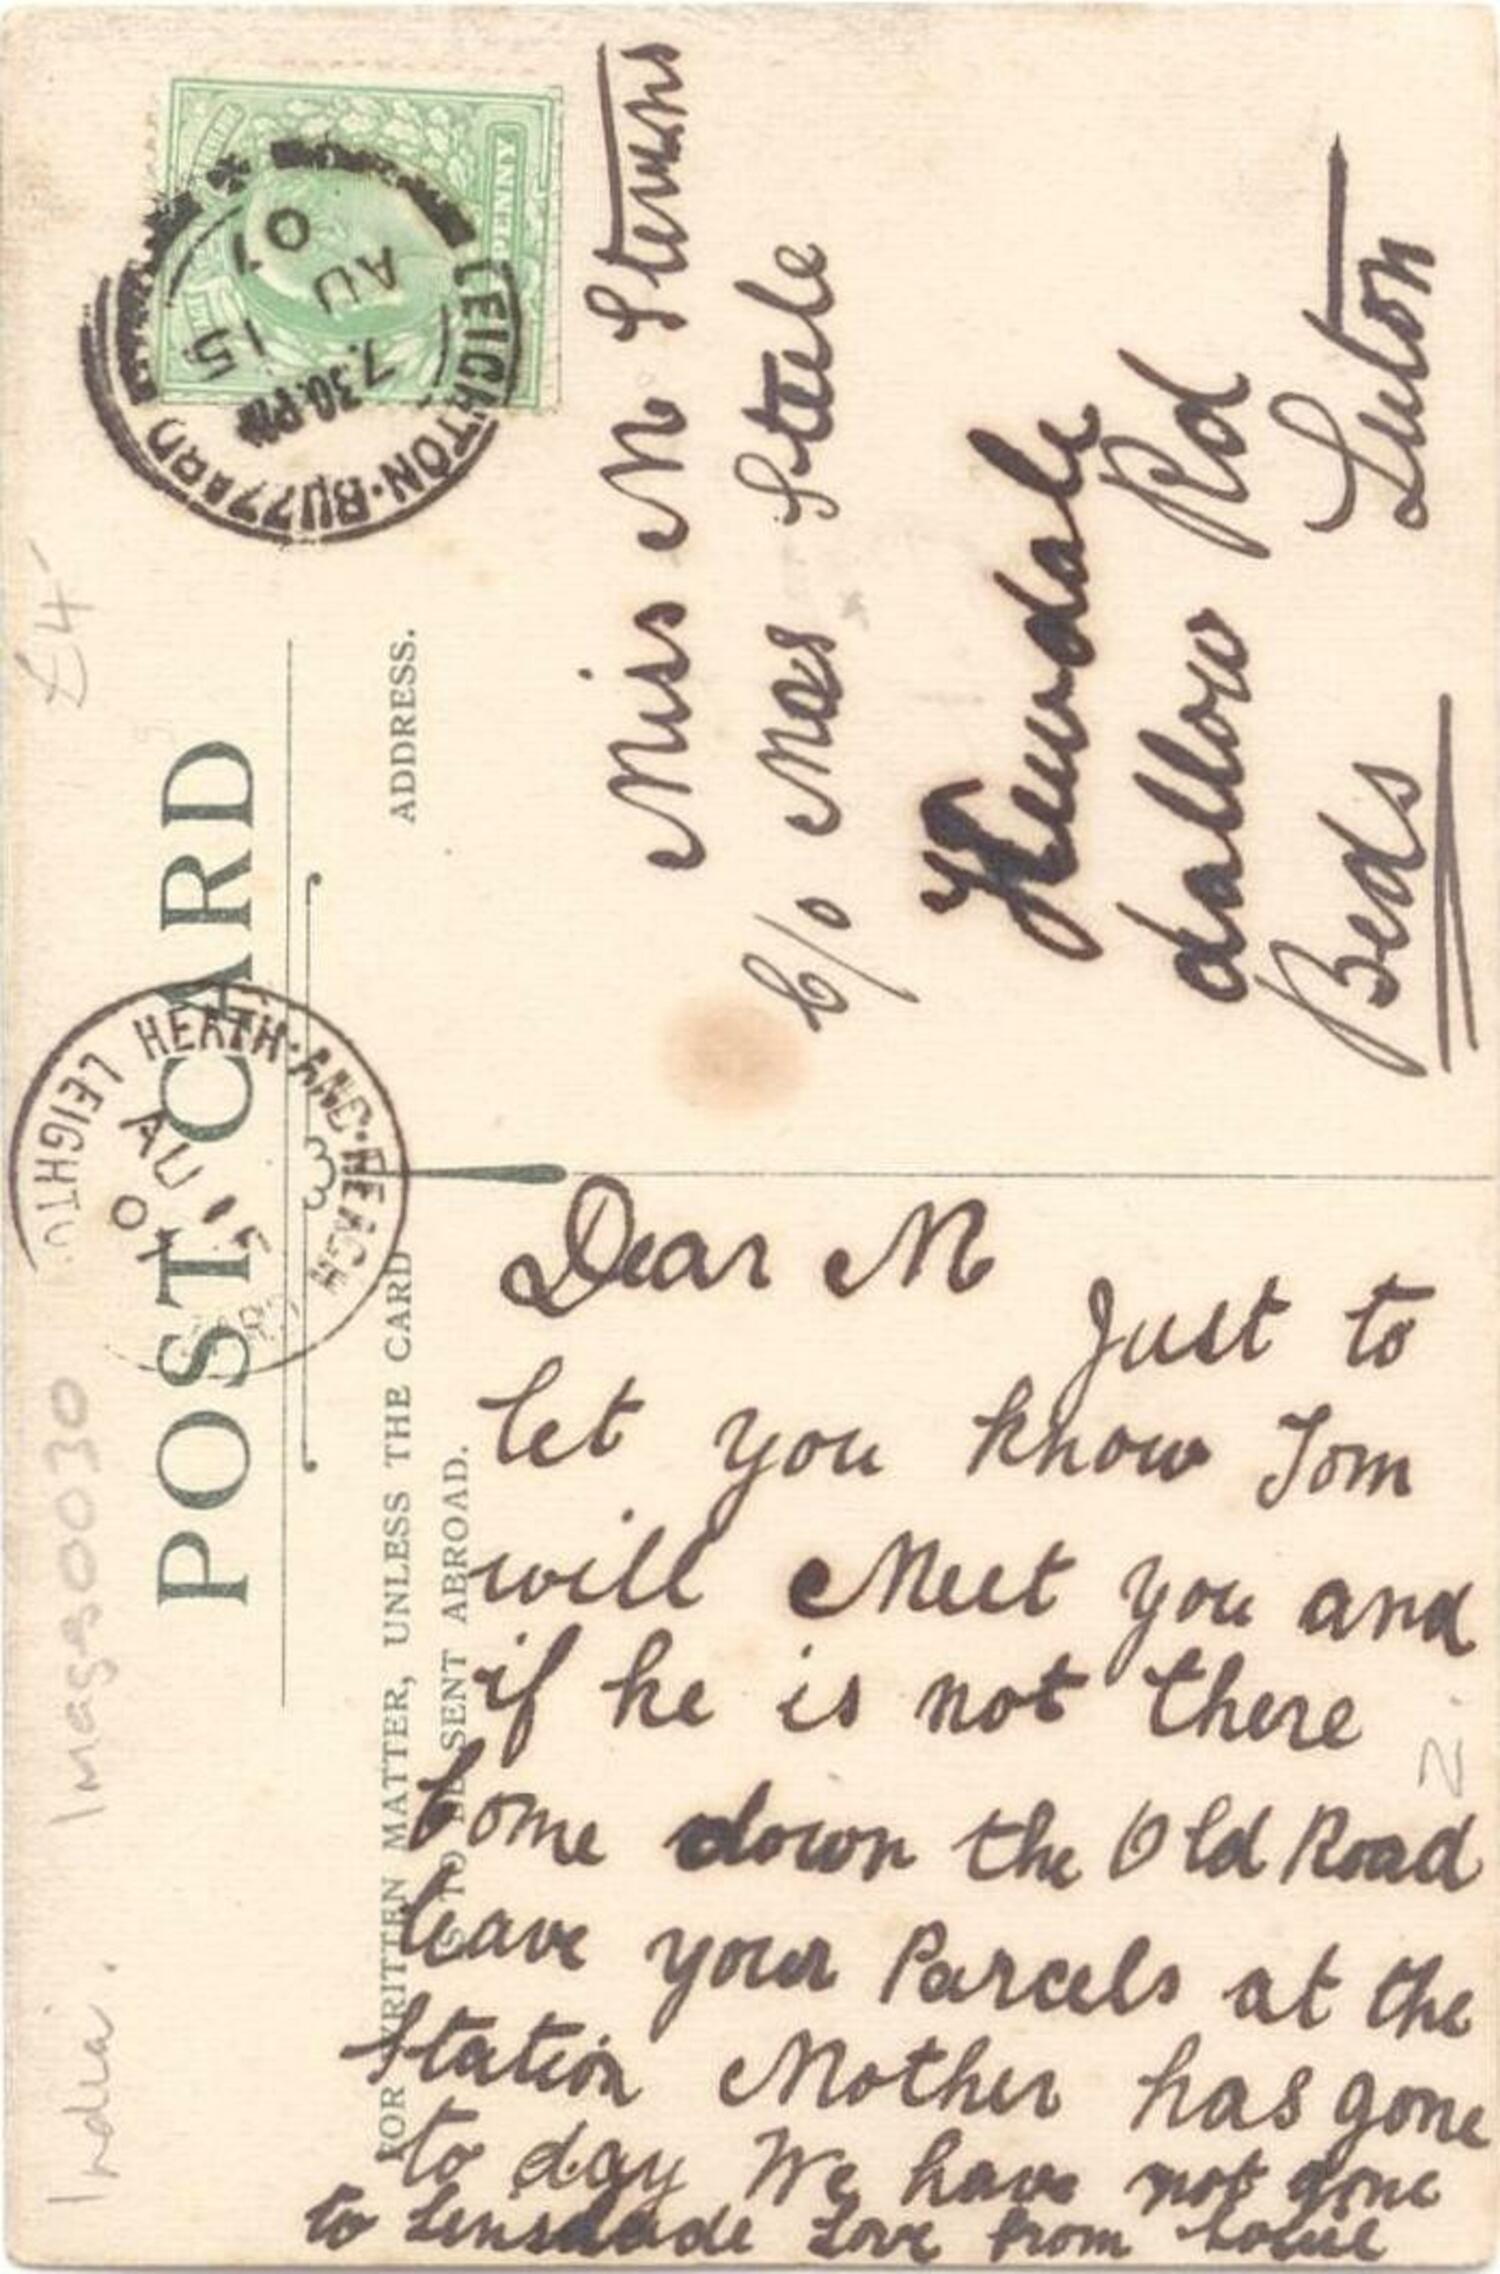 POST CARD
FOR WRITTEN MATTER, UNLESS THE CARD
IS TO BE SENT ABROAD.
ADDRESS.
PENNY
LEIGHTON·BUZZARD
7.30.PM
AU 15
07
HEATH·AND·REACH
LEIGHTO
AU 15
07
£4
Image 0030
India.
2.
Miss M Stevens
C/o Mrs Steele
dallow Rd
Luton
Beds
Dear M
Just to
let you know Tom
will Meet you and
if he is not there
Come down the Old Road
leave your Parcels at the
Station Mother has gone
to day We have not gone
to Love from